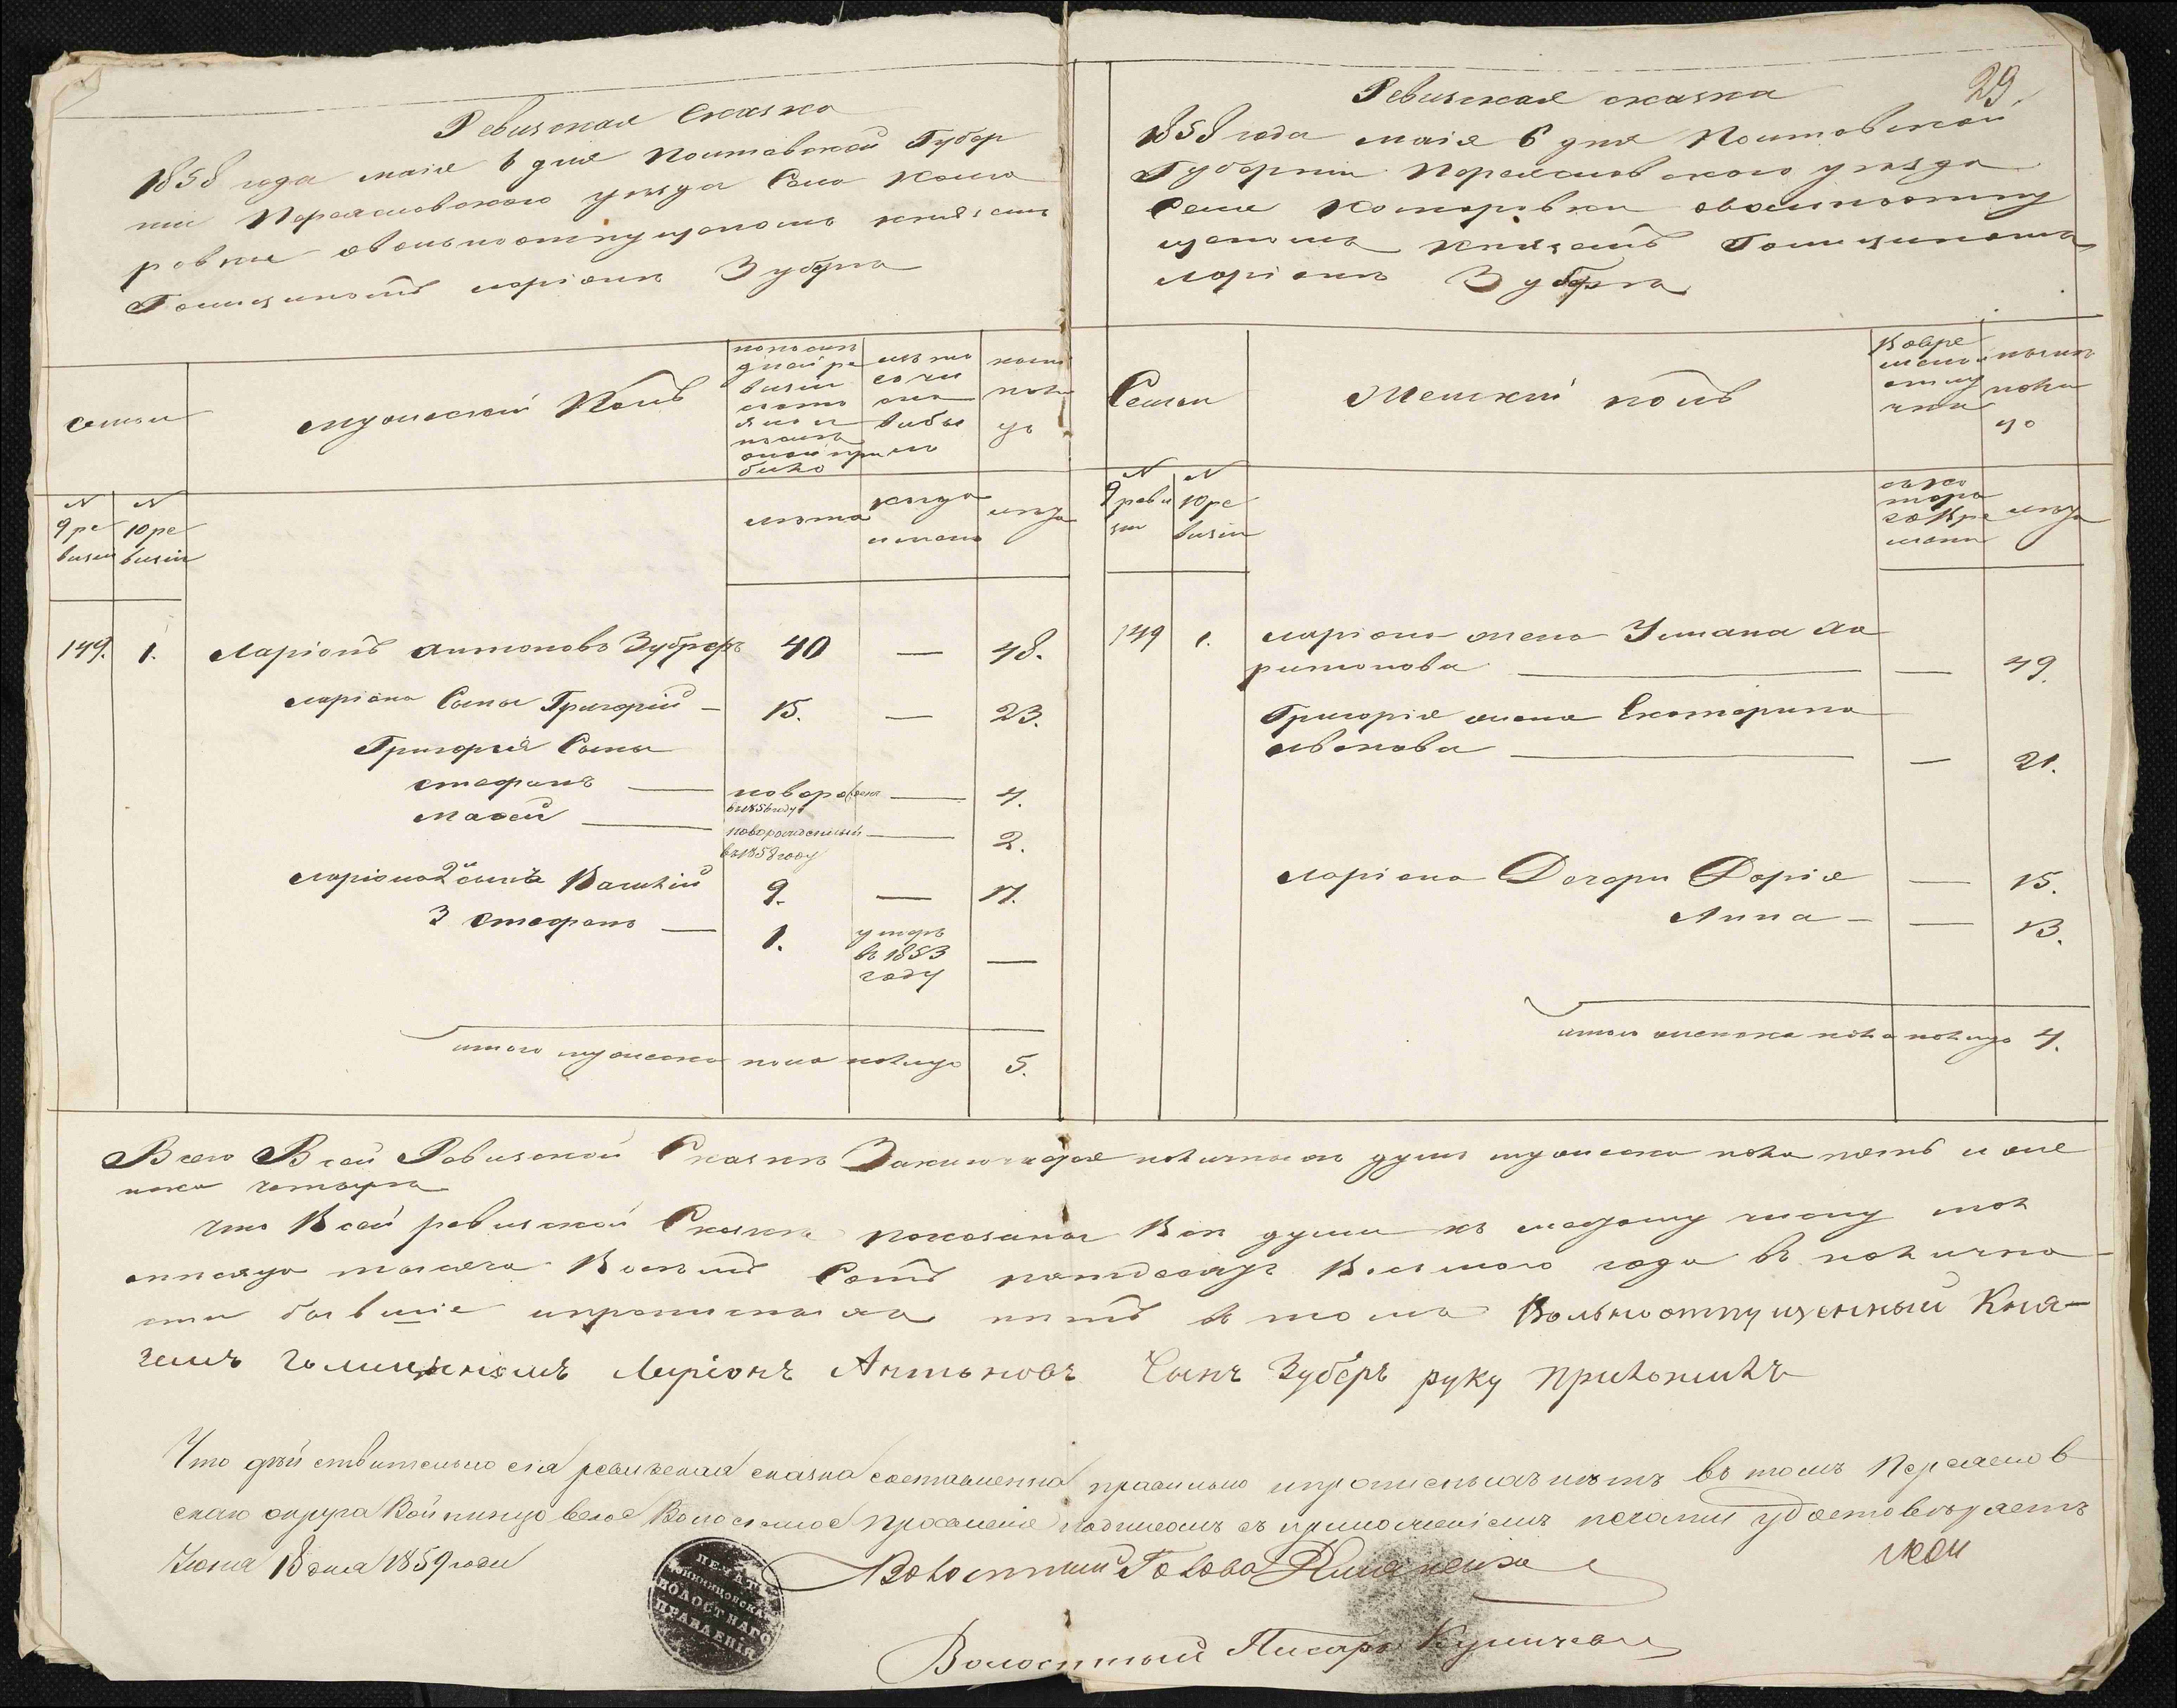 Ревизская Сказка
1858 года маія 6 дня Полтавской Губер
ніи Переясловского уезда Села Кома
ровки овольноотпущеномъ княземъ
Голицинымъ ларіонѣ Зубрѣ
семьи
мужеский Полъ
по послѣд
ней ре
визіи
состо
яло и
послѣ
оной при
было
изъ то
го чи
сла
выбы
ло
ныне
на ли
цо
N
9 ре
визіи
N
10 ре
визіи
лѣта
когда
именно
лѣта
149. 1. Ларіонъ Антоновъ Зубрерь 40 — 48.
Ларіона Сынъ Григорій — 15. — 23.
Григорія Сыны
стефанъ — новорожден — 4.
в 1856 году
Мосей — новорожденный — 2.
въ 1858 году
Ларіона 2й сынъ Василій 9. — 17.
3 Стефанъ — 1. умеръ
въ 1853 —
году
итого мужеска пола налицо 5.
29.
Ревизская сказка
1858 года маія 6 дня Полтавской
Губерніи Переясловского уезда
Села Комаровки овольноотпу
щеномъ Княземъ Голицинымъ
ларіонѣ Зубрѣ
Семьи
Женский полъ
Вовре
менной
отлу
чки
ныне
нали
цо
N
9 реви
зіи
N
10 ре
визіи
съ ко
тора
го вре
мени
лѣта
149 1. Ларіона жена Уляна Ха
ритонова — — 49.
Григорія жена Екатерина
Ивanова — — 21.
Ларіона Дочери Дарія — 15.
Анна — — 13.
итого женска пола налицо 4.
Всего В сей Ревизской Сказкѣ Заключается наличныхъ душъ мужеска пола пять и же
нска четыри
что В сей ревизской Сказки показаны Все души къ шестому числу мая
тысяча Восемь Сотъ пятдесятъ Восмого года в налично
сти бывшіе ипрописныхъ нѣтъ в томъ Вольноотпущенный Кня–
земъ Голицинимъ Ларіонъ Антоновъ Сынъ Зубёръ руку приложилъ
Что дѣйствительно сія ревизская сказка составленна правильно ипрописныхъ нѣтъ въ томъ Переяслов
скаго округа Войницовское Волостное Правленіе подписомъ съ приложеніемъ печати удостовѣряетъ
Іюня 18 дня 1859 года
ПЕЧАТЬ
ВОЛОСТНАГО
ПРАВЛЕНІЯ
Волостный Голова
Волостный Писарь